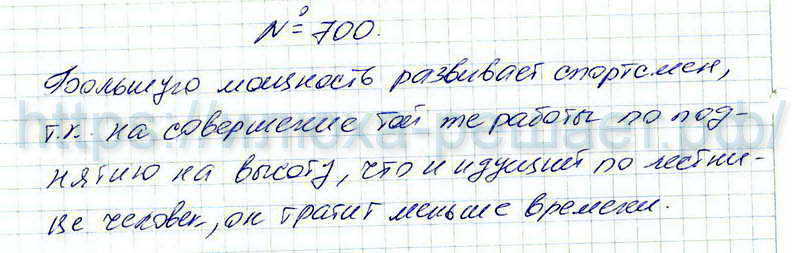 № 700.
Большую мощность развивает спортсмен,
т.к. на совершение той же работы по под-
нятию на высоту, что и идущий по лестни-
це человек, он тратит меньше времени.